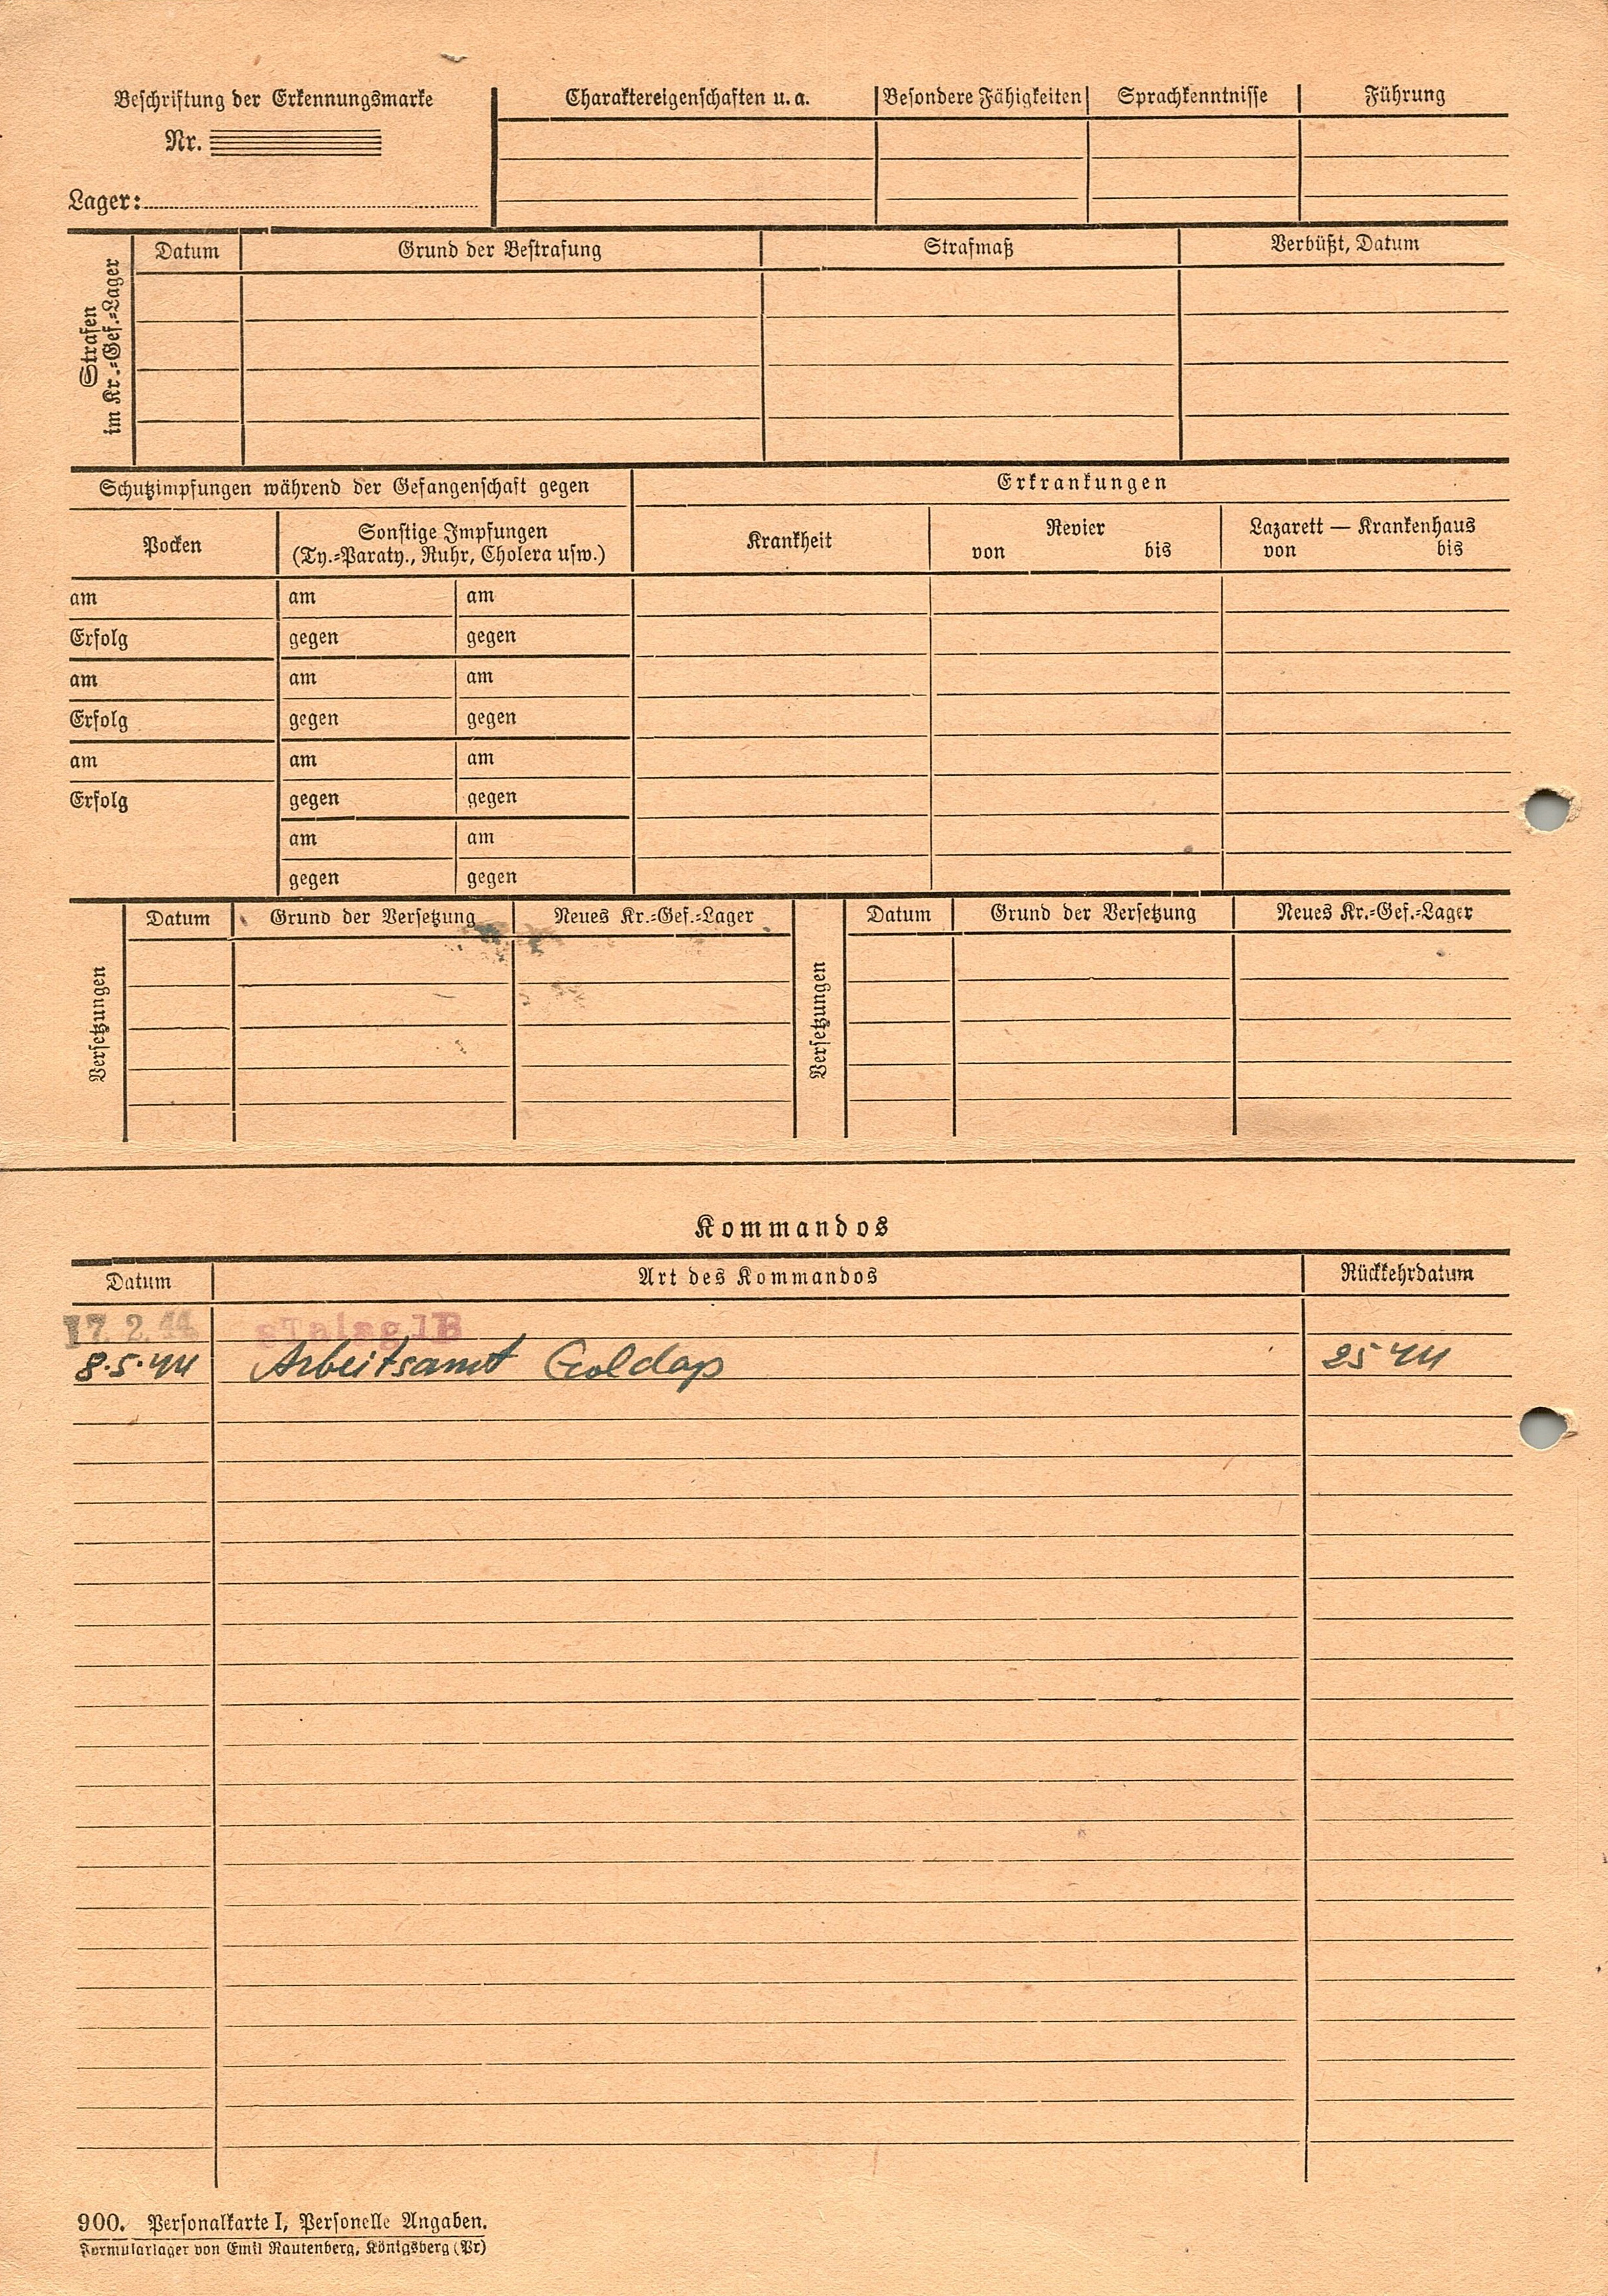 Beschriftung der Erkennungsmarke
Nr.
Lager:
Charaktereigenschaften u. a. Besondere Fähigkeiten Sprachkenntnisse Führung
Strafen
im Kr.-Gef.-Lager
Datum Grund der Bestrafung Strafmaß Verbüßt, Datum
Schutzimpfungen während der Gefangenschaft gegen Erkrankungen
Pocken
Sonstige Impfungen
(Ty.-Paraty., Ruhr, Cholera usw.)
Krankheit
Revier
von bis
Lazarett — Krankenhaus
von bis
am am am
Erfolg gegen gegen
am am am
Erfolg gegen gegen
am am am
Erfolg gegen gegen
am am
gegen gegen
Versetzungen
Datum Grund der Versetzung Neues Kr.-Gef.-Lager
Versetzungen
Datum Grund der Versetzung Neues Kr.-Gef.-Lager
Kommandos
Datum Art des Kommandos Rückkehrdatum
17. 2. 44
8.5.44 Arbeitsamt Goldap 25 44
900. Personalkarte I, Personelle Angaben.
Formularlager von Emil Rautenberg, Königsberg (Pr)